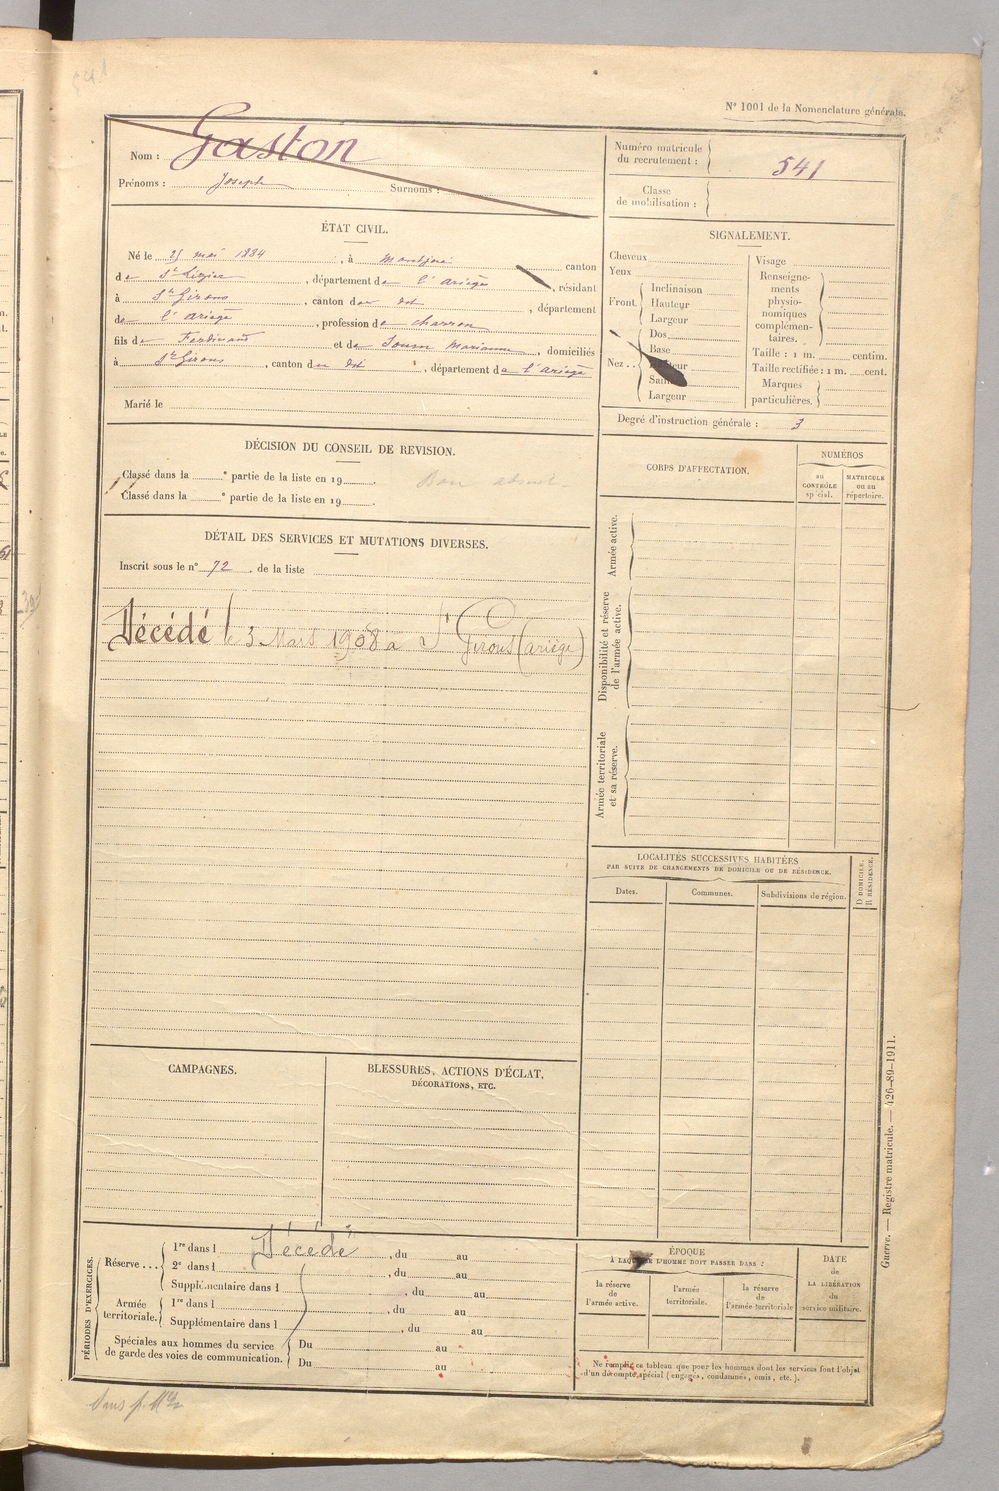 541
N° 1001 de la Nomenclature générale.
Nom : Gaston
Prénoms : Joseph Surnoms :
Numéro matricule du recrutement : 541
Classe de mobilisation :
ÉTAT CIVIL.
Né le 25 mai 1884, à Montjoie canton
de St Lizier, département de l'Ariège, résidant
à St Girons, canton du dit, département
de l'Ariège, profession de charron
fils de Ferdinand et de Marianne, domiciliés
à St Girons, canton du dit, département de l'Ariège
Marié le
SIGNALEMENT.
Cheveux
Yeux
Front. Inclinaison
Hauteur
Largeur
Nez.. Dos
Base
Hauteur
Saillie
Largeur
Visage
Renseignements physionomiques complémentaires.
Taille : 1 m. centim.
Taille rectifiée : 1 m. cent.
Marques particulières.
Degré d'instruction générale : 3
DÉCISION DU CONSEIL DE REVISION.
Classé dans la e partie de la liste en 19 .
Bon absent
Classé dans la e partie de la liste en 19 .
DÉTAIL DES SERVICES ET MUTATIONS DIVERSES.
Inscrit sous le n° 72 de la liste
Décédé le 3 Mars 1908 a St Girons (Ariège)
CORPS D'AFFECTATION.
NUMÉROS
au CONTRÔLE spécial.
MATRICULE ou au répertoire.
Armée active.
Disponibilité et réserve de l'armée active.
Armée territoriale et sa réserve.
LOCALITÉS SUCCESSIVES HABITÉES
PAR SUITE DE CHANGEMENTS DE DOMICILE OU DE RÉSIDENCE.
Dates.
Communes.
Subdivisions de région.
D DOMICILE.
R RÉSIDENCE.
CAMPAGNES.
BLESSURES, ACTIONS D'ÉCLAT,
DÉCORATIONS, ETC.
PÉRIODES D'EXERCICES.
Réserve... 1re dans l Décédé, du au
2e dans l , du au
Supplémentaire dans l , du au
Armée territoriale. 1re dans l , du au
Supplémentaire dans l , du au
Spéciales aux hommes du service de garde des voies de communication. Du au
Du au
ÉPOQUE
À LAQUELLE L'HOMME DOIT PASSER DANS :
la réserve de l'armée active.
l'armée territoriale.
la réserve de l'armée territoriale
DATE de LA LIBÉRATION du service militaire.
Ne remplir ce tableau que pour les hommes dont les services font l'objet
d'un décompte spécial (engagés, condamnés, omis, etc.).
Guerre. — Registre matricule. — 426-89-1911.